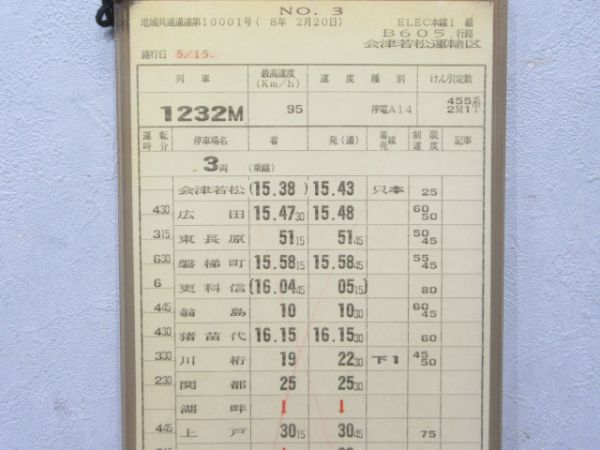 NO. 3
地域共通運達第10001号( 8年 2月20日) ELEC本線1 組
B605,行路
施行日 5/15. 会津若松運輸区
列 車 最高速度(Km/h) 速 度 種 別 けん引定数
1232M 95 停電A14 455系 2M1T
運転時分 停車場名 着 発(通) 着発線 制限速度 記事
3両 (乗継)
会津若松 (15.38) 15.43 只本 25
430 広 田 15.4730 15.48 60 50
315 東 長 原 5115 5145 50 45
630 磐 梯 町 15.5815 15.5845 55 45
6 更 科 信 (16.0445 0515) 80
翁 島 10 1030 60 45
430 猪 苗 代 16.15 16.1530 60
330 川 桁 19 2230 下1 45 50
230 関 都 25 2530
湖 畔 ↓ ↓
445 上 戸 3015 3045 75